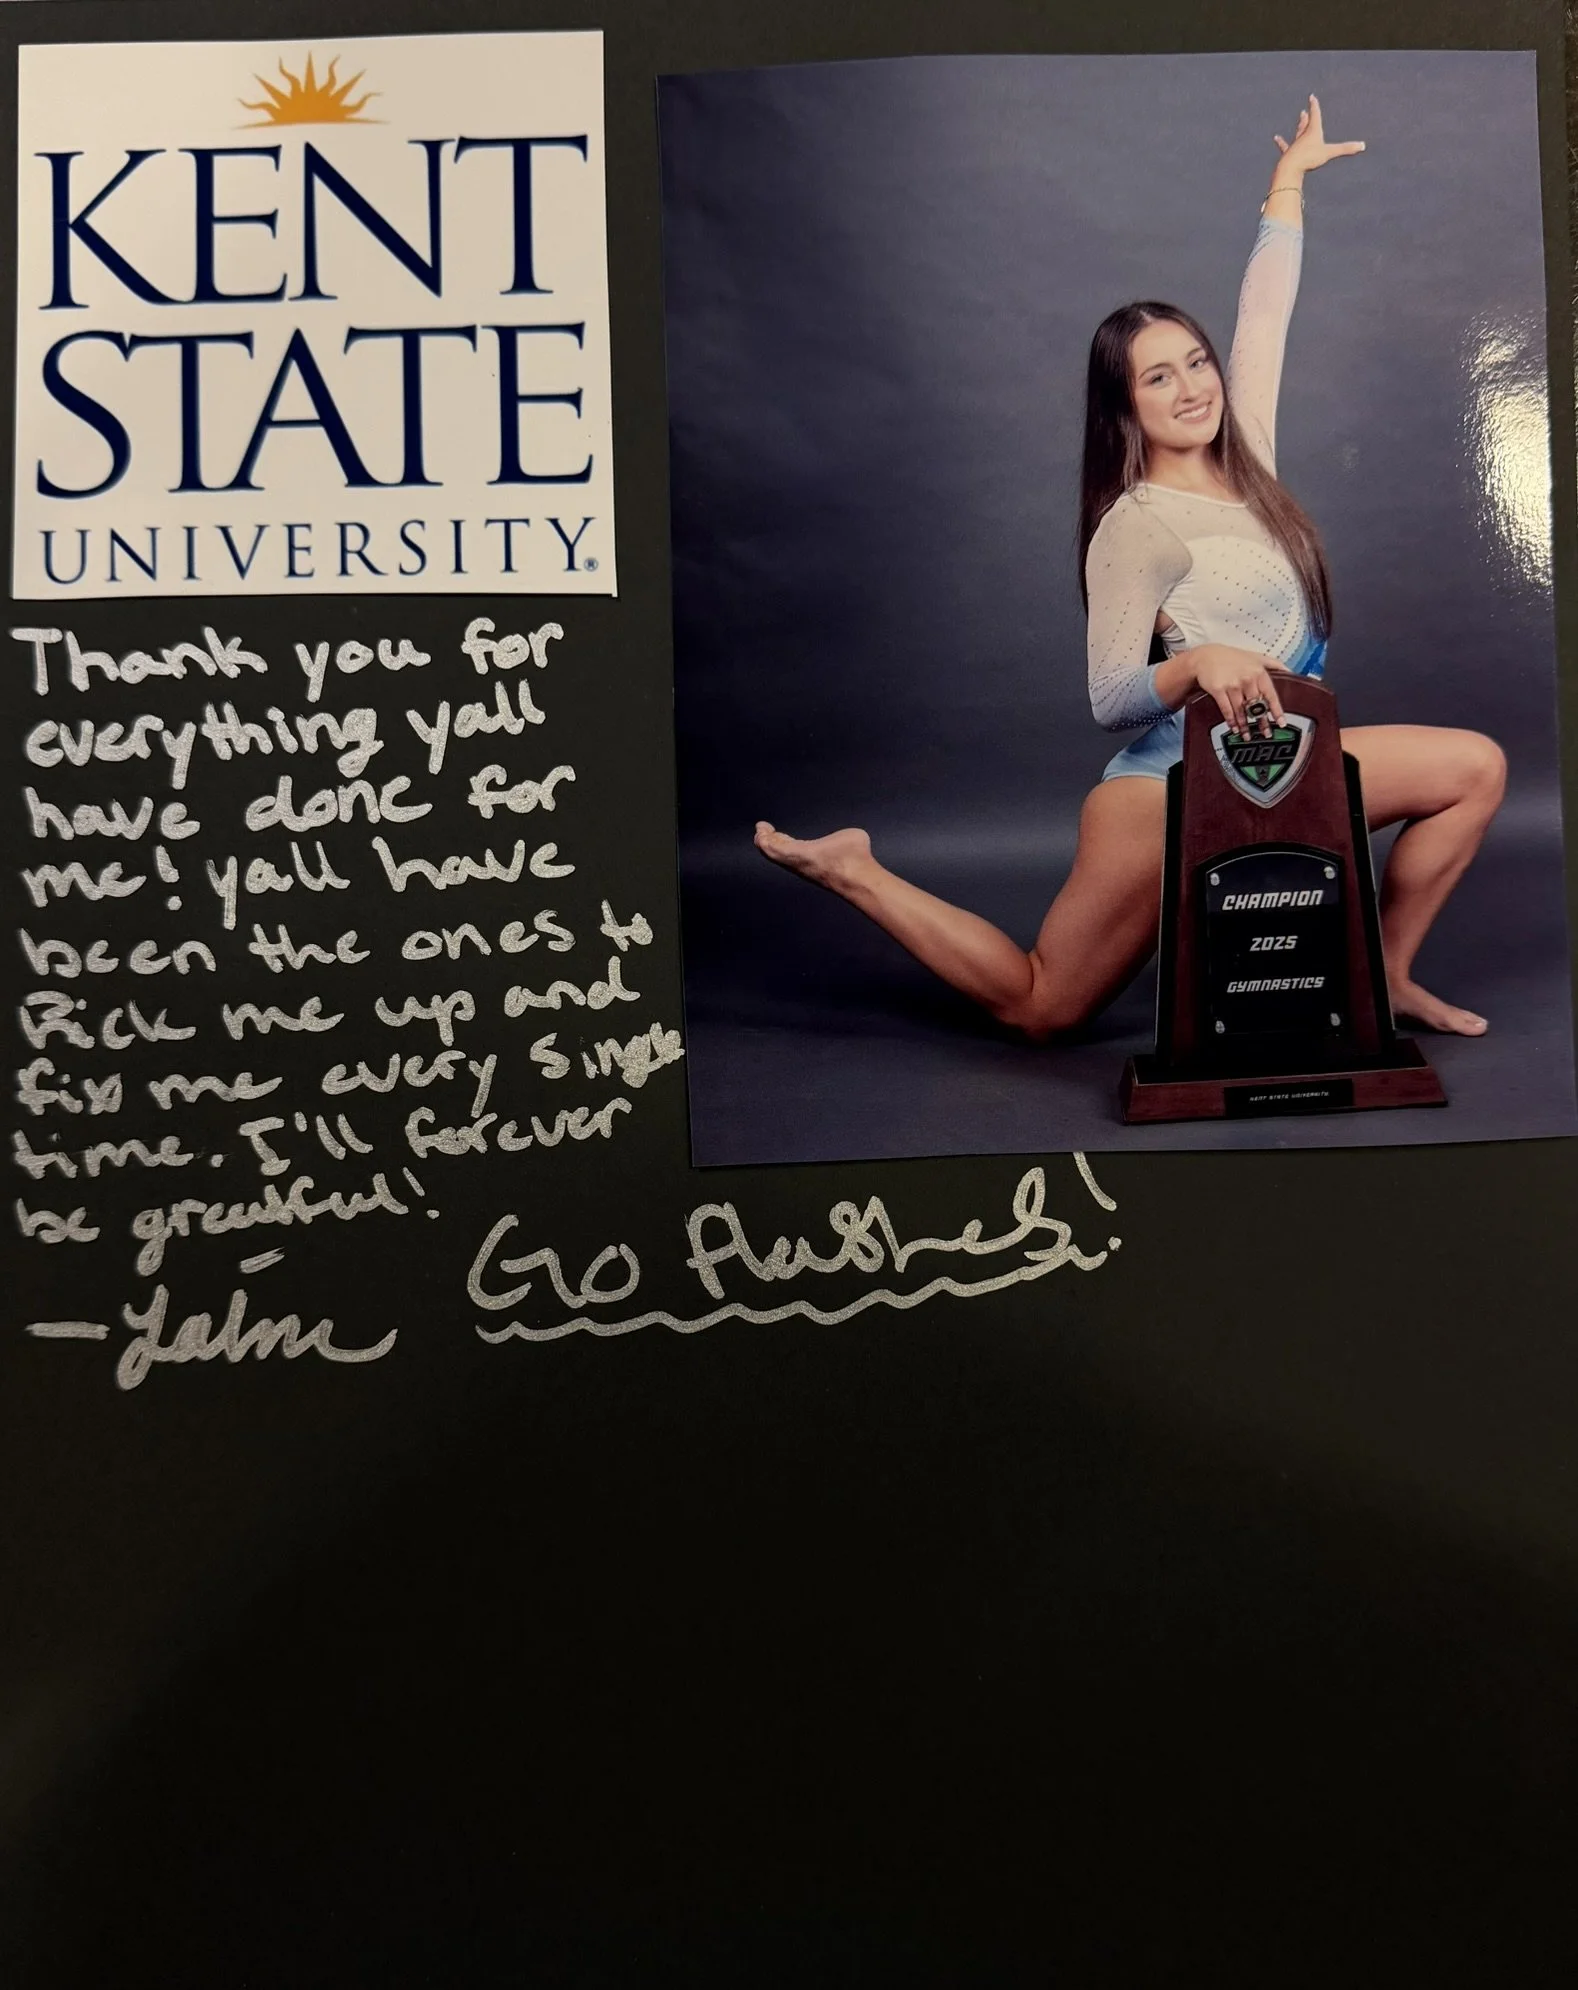 KENT
STATE
UNIVERSITY®
Thank you for
everything yall
have done for
me! yall have
been the ones to
Pick me up and
fix me every single
time. I'll forever
be greatful!
Go flashes!
MAC
CHAMPION
2025
GYMNASTICS
KENT STATE UNIVERSITY